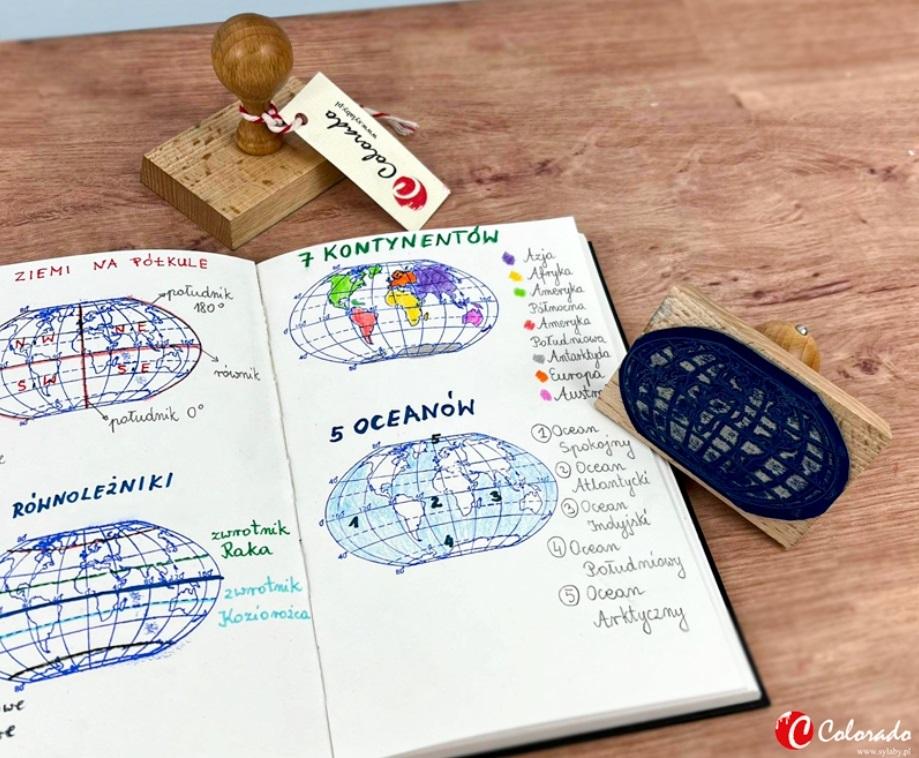 Colorado
www.sylaby.pl
ZIEMI NA PÓŁKULE
południk
180°
N W
N E
S W
S E
równik
południk 0°
RÓWNOLEŻNIKI
zwrotnik
Raka
zwrotnik
Koziorożca
7 KONTYNENTÓW
Azja
Afryka
Ameryka
Północna
Ameryka
Południowa
Antarktyda
Europa
Austr
5 OCEANÓW
5
1
2
3
4
① Ocean
Spokojny
② Ocean
Atlantycki
③ Ocean
Indyjski
④ Ocean
Południowy
⑤ Ocean
Arktyczny
Colorado
www.sylaby.pl